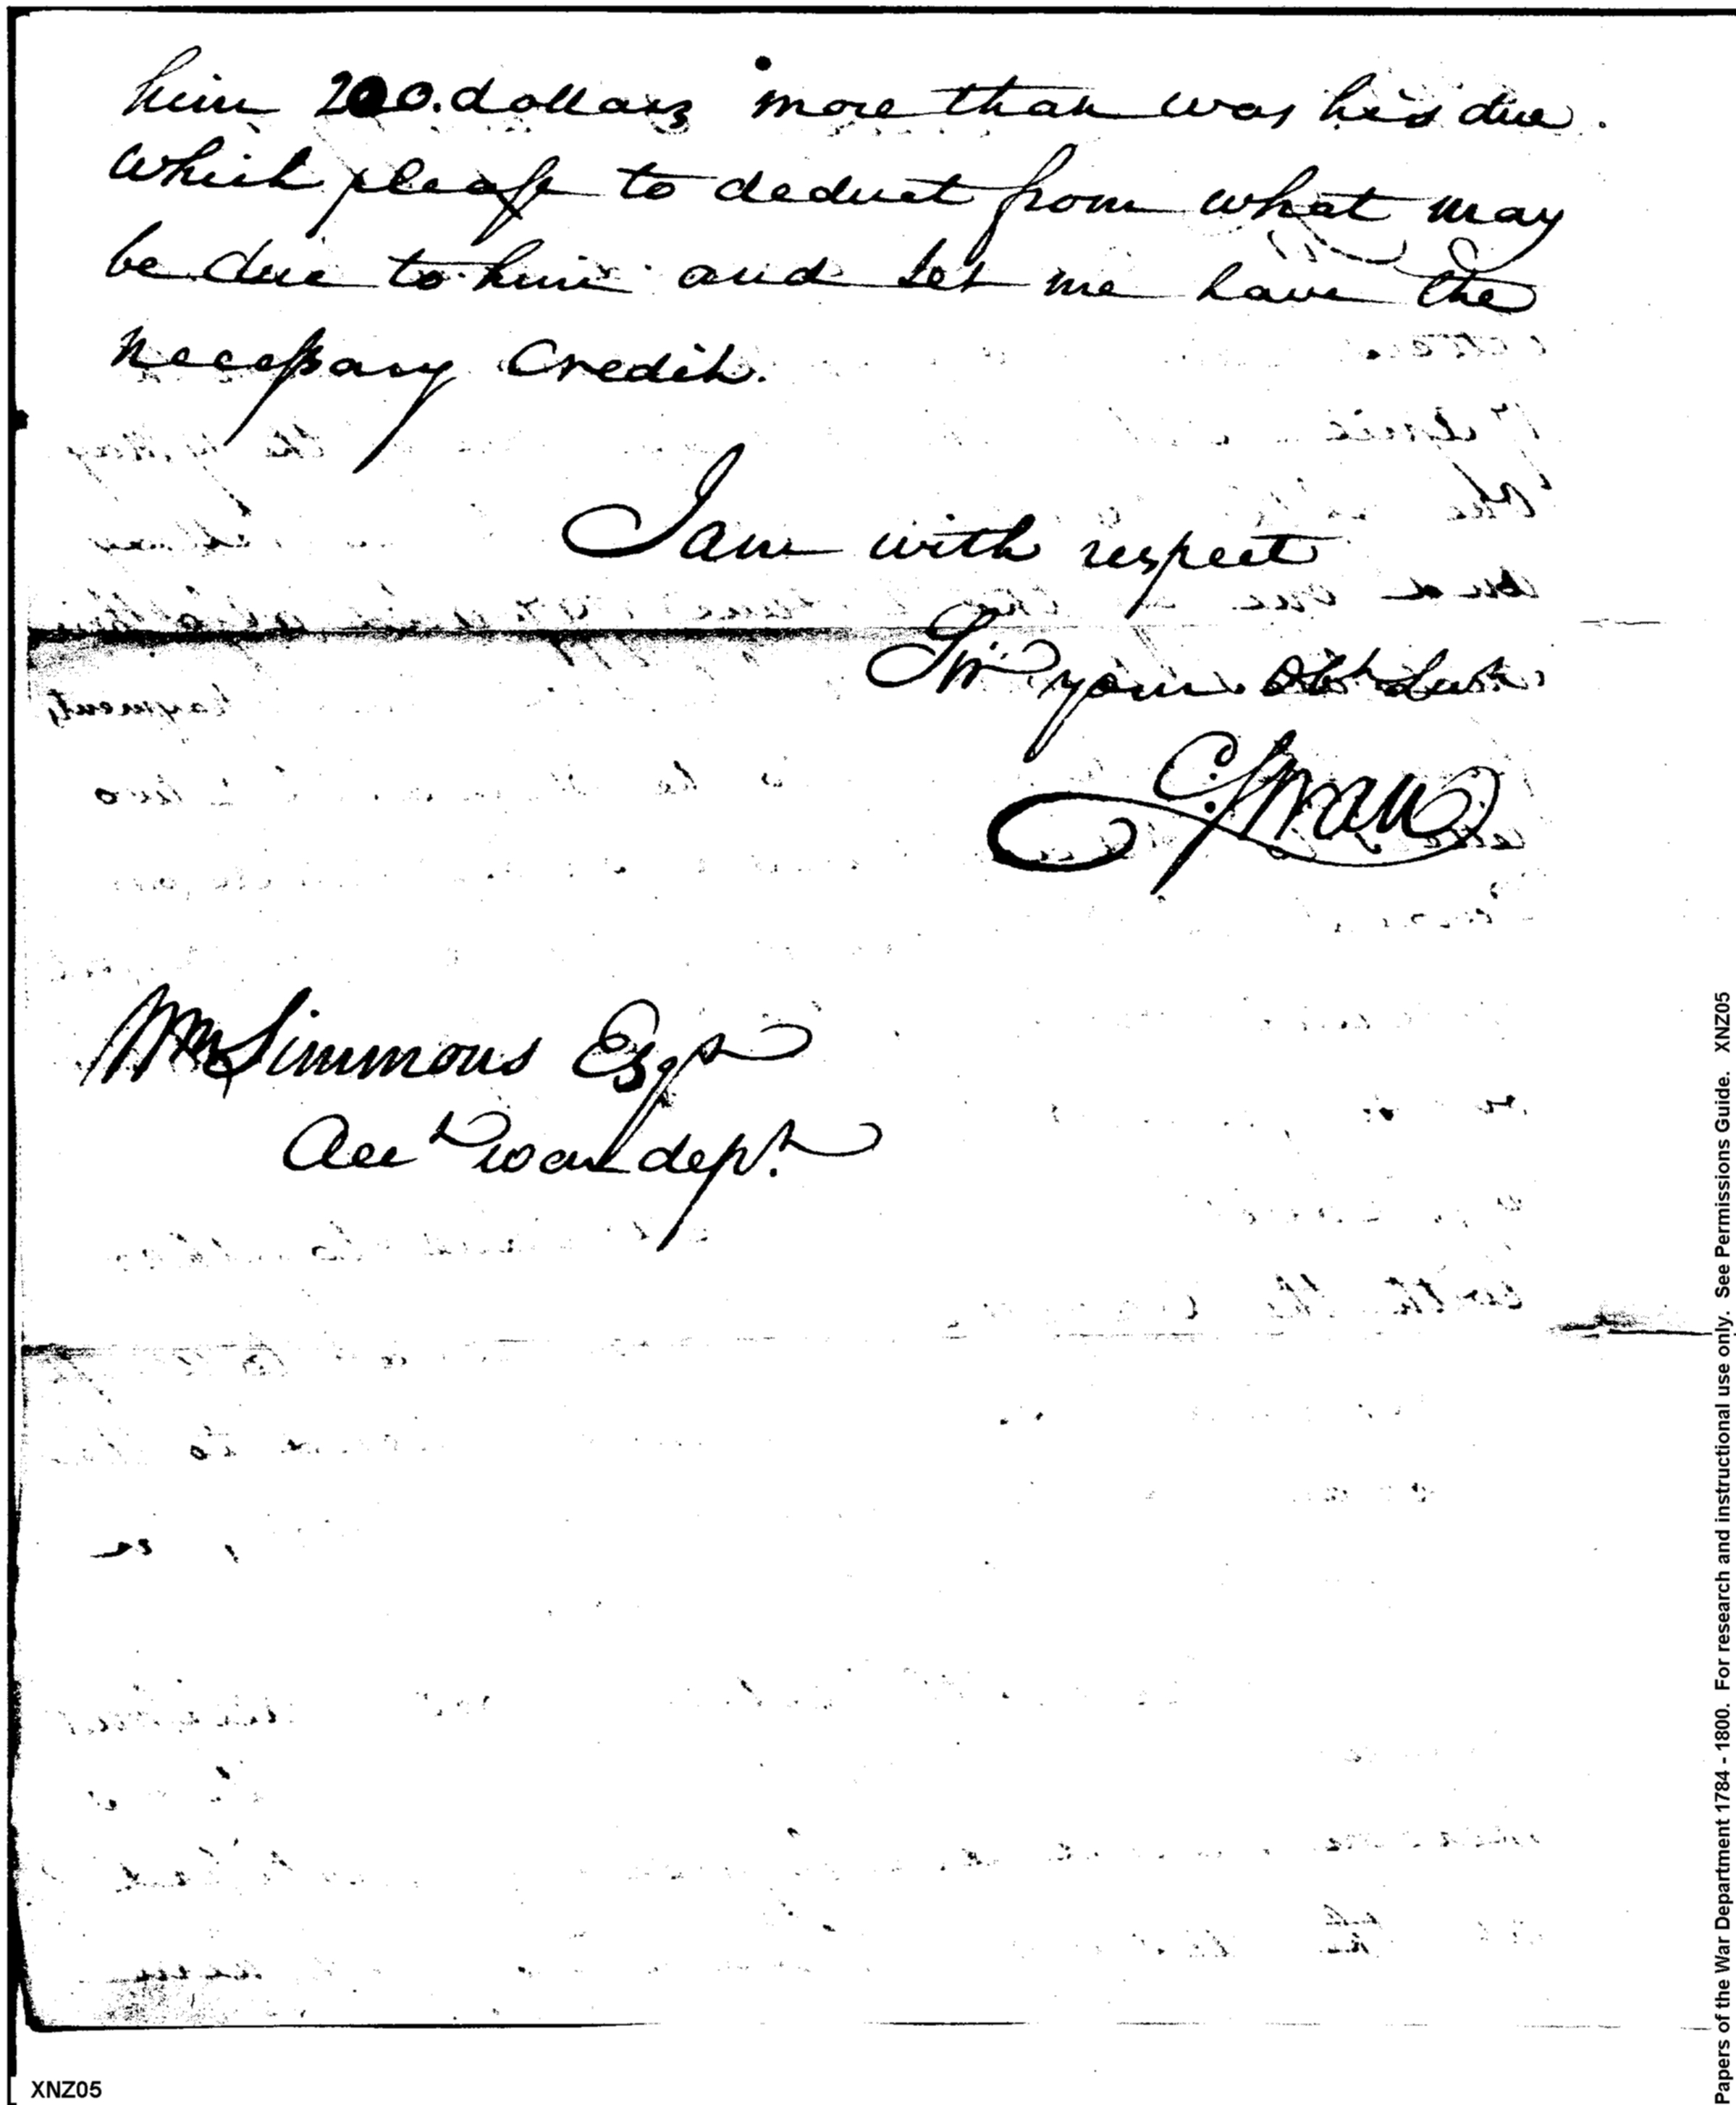 him 200. dollars more than was his due.
which please to deduct from what may
be due to him and let me have the
necessary Credit.
I am with respect
Sir your Obt Servt
C. Swan
Wm Simmons Esqr
Acct war dept.
XNZ05
Papers of the War Department 1784 - 1800. For research and instructional use only. See Permissions Guide. XNZ05